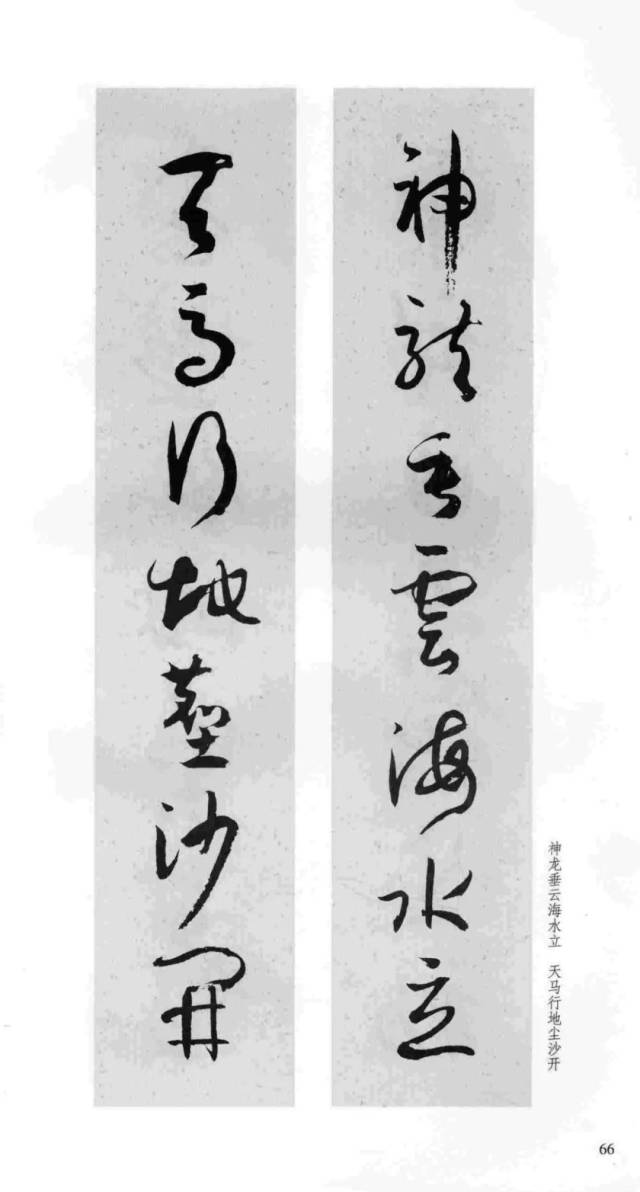 神龍垂雲海水立
天馬行地塵沙開
神龙垂云海水立 天马行地尘沙开
66